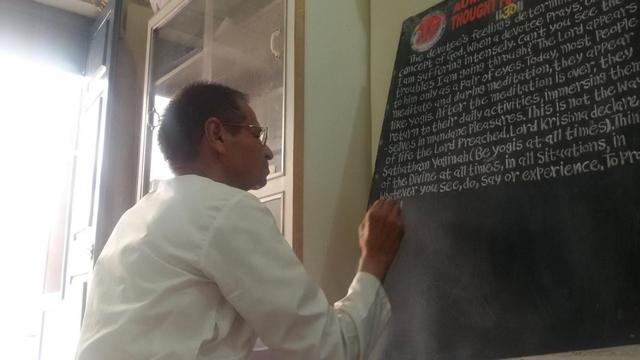 THOUGHT F
30
The devotee's feelings determin
concept of God. When a devotee prays, O
I am suffering intensely. Can't you see the
troubles I am going through? The Lord appears
to him only as a pair of eyes. Today, most people
meditate and during meditation, they appear
like yogis. After the meditation is over, they
return to their daily activities, immersing them
-selves in mundane pleasures. This is not the wa
of life the Lord Preached. Lord Krishna declare
Sathatham Yoginah (Be yogis at all times). Thin
of the Divine at all times, in all situations, in
whatever you see, do, say or experience. To Pra